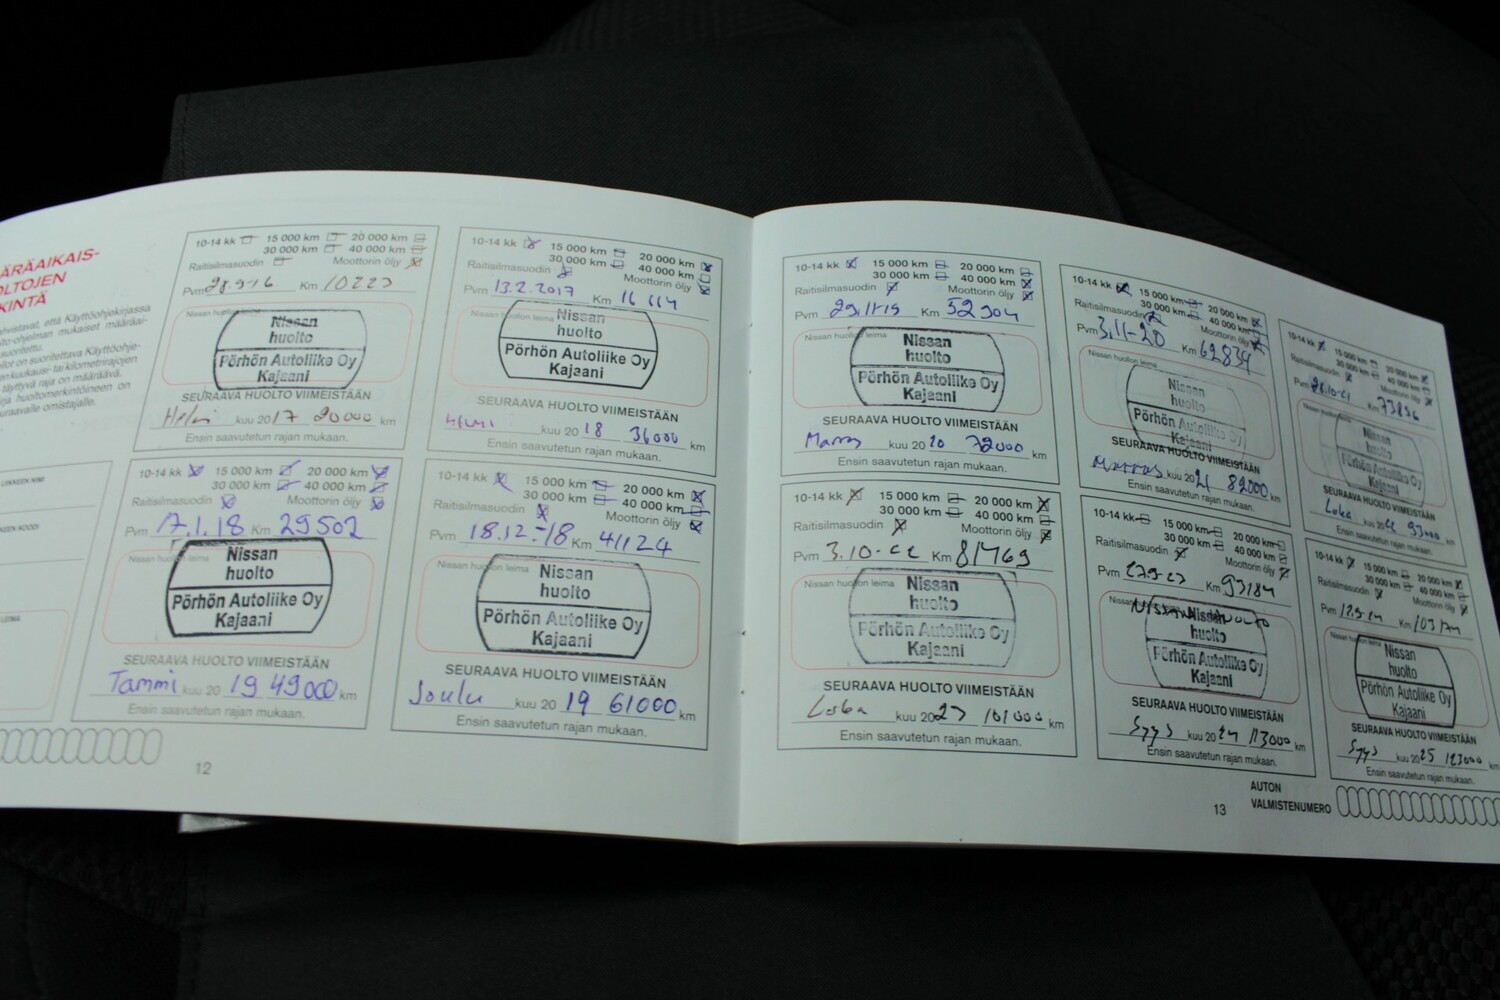 ÄRÄAIKAIS-
OLTOJEN
KINTÄ
ahvistavat, että Käyttöohjekirjassa
lto-ohjelman mukaiset määräai-
suoritettu.
llot on suoritettava Käyttöohje-
en kuukausi- tai kilometrirajojen
täyttyvä raja on määräävä.
rja huoltomerkintöineen on
uraavalle omistajalle.
LIIKKEEN NIMI
KEEN KOODI
LEIMA
10-14 kk 15 000 km 20 000 km
30 000 km 40 000 km
Raitisilmasuodin Moottorin öljy
Pvm 28.9-16 Km 10223
Nissan huollon leima
Nissan
huolto
Pörhön Autoliike Oy
Kajaani
SEURAAVA HUOLTO VIIMEISTÄÄN
Helmi kuu 2017 20000 km
Ensin saavutetun rajan mukaan.
10-14 kk 15 000 km 20 000 km
30 000 km 40 000 km
Raitisilmasuodin Moottorin öljy
Pvm 13.2.2017 Km 16114
Nissan huollon leima
Nissan
huolto
Pörhön Autoliike Oy
Kajaani
SEURAAVA HUOLTO VIIMEISTÄÄN
Helmi kuu 2018 36000 km
Ensin saavutetun rajan mukaan.
10-14 kk 15 000 km 20 000 km
30 000 km 40 000 km
Raitisilmasuodin Moottorin öljy
Pvm 17.1.18 Km 29502
Nissan huollon leima
Nissan
huolto
Pörhön Autoliike Oy
Kajaani
SEURAAVA HUOLTO VIIMEISTÄÄN
Tammi kuu 2019 49000 km
Ensin saavutetun rajan mukaan.
10-14 kk 15 000 km 20 000 km
30 000 km 40 000 km
Raitisilmasuodin Moottorin öljy
Pvm 18.12-18 Km 41124
Nissan huollon leima
Nissan
huolto
Pörhön Autoliike Oy
Kajaani
SEURAAVA HUOLTO VIIMEISTÄÄN
Joulu kuu 2019 61000 km
Ensin saavutetun rajan mukaan.
12
10-14 kk 15 000 km 20 000 km
30 000 km 40 000 km
Raitisilmasuodin Moottorin öljy
Pvm 29.11-19 Km 52904
Nissan huollon leima
Nissan
huolto
Pörhön Autoliike Oy
Kajaani
SEURAAVA HUOLTO VIIMEISTÄÄN
Marras kuu 2020 72000 km
Ensin saavutetun rajan mukaan.
10-14 kk 15 000 km 20 000 km
30 000 km 40 000 km
Raitisilmasuodin Moottorin öljy
Pvm 3.11-20 Km 62834
Nissan huollon leima
Nissan
huolto
Pörhön Autoliike Oy
Kajaani
SEURAAVA HUOLTO VIIMEISTÄÄN
Marras kuu 2021 82000 km
Ensin saavutetun rajan mukaan.
10-14 kk 15 000 km 20 000 km
30 000 km 40 000 km
Raitisilmasuodin Moottorin öljy
Pvm Km 73856
Nissan huollon leima
Nissan
huolto
Pörhön Autoliike Oy
Kajaani
SEURAAVA HUOLTO VIIMEISTÄÄN
Loka kuu 2022 93000 km
Ensin saavutetun rajan mukaan.
10-14 kk 15 000 km 20 000 km
30 000 km 40 000 km
Raitisilmasuodin Moottorin öljy
Pvm 3.10-22 Km 81469
Nissan huollon leima
Nissan
huolto
Pörhön Autoliike Oy
Kajaani
SEURAAVA HUOLTO VIIMEISTÄÄN
Loka kuu 2023 101000 km
Ensin saavutetun rajan mukaan.
10-14 kk 15 000 km 20 000 km
30 000 km 40 000 km
Raitisilmasuodin Moottorin öljy
Pvm 27.9-23 Km 93184
NISSAN HUOLTO
Nissan
huolto
Pörhön Autoliike Oy
Kajaani
SEURAAVA HUOLTO VIIMEISTÄÄN
Syys kuu 2024 113000 km
Ensin saavutetun rajan mukaan.
10-14 kk 15 000 km 20 000 km
30 000 km 40 000 km
Raitisilmasuodin Moottorin öljy
Pvm Km 103174
Nissan huollon leima
Nissan
huolto
Pörhön Autoliike Oy
Kajaani
SEURAAVA HUOLTO VIIMEISTÄÄN
Syys kuu 2025 123000 km
Ensin saavutetun rajan mukaan.
13
AUTON
VALMISTENUMERO